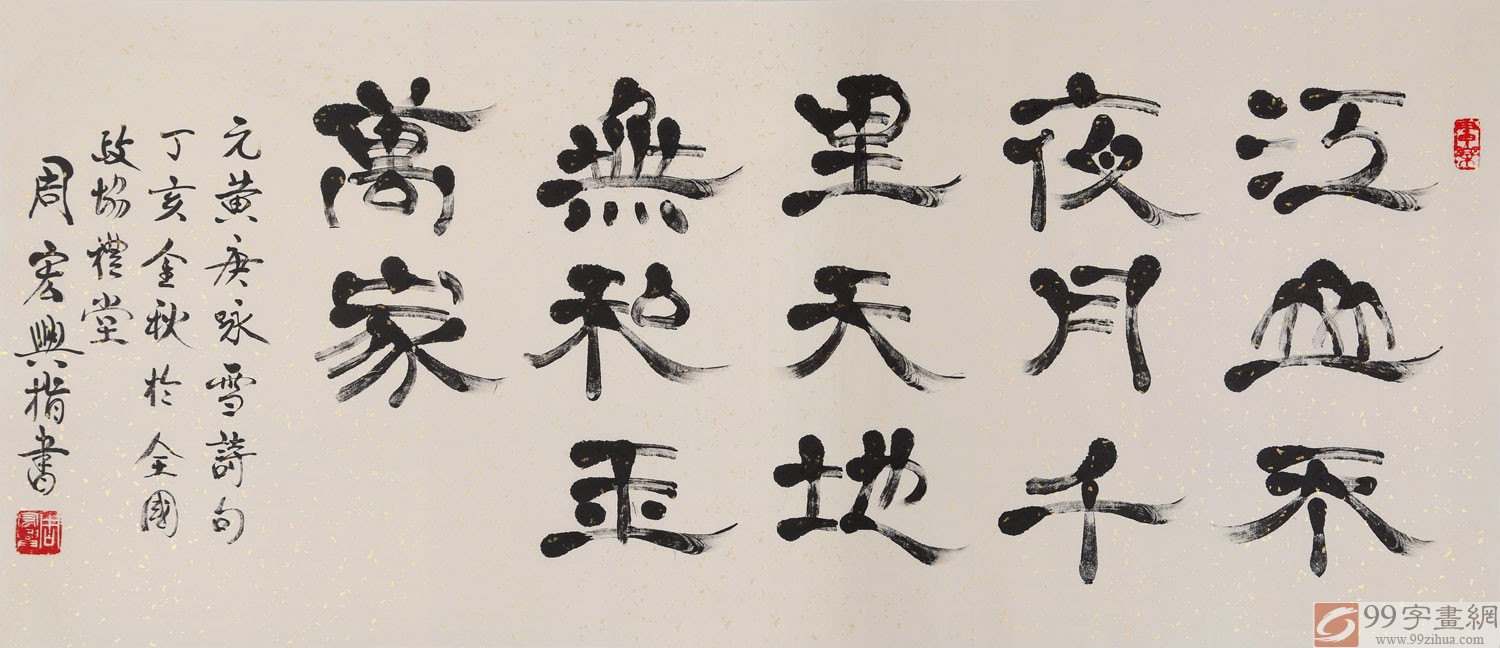 江山不
夜月千
里天地
無私玉
萬家
元黄庚咏雪詩句
丁亥金秋於全國
政協禮堂
周宏興指書
99字畫網
www.99zihua.com